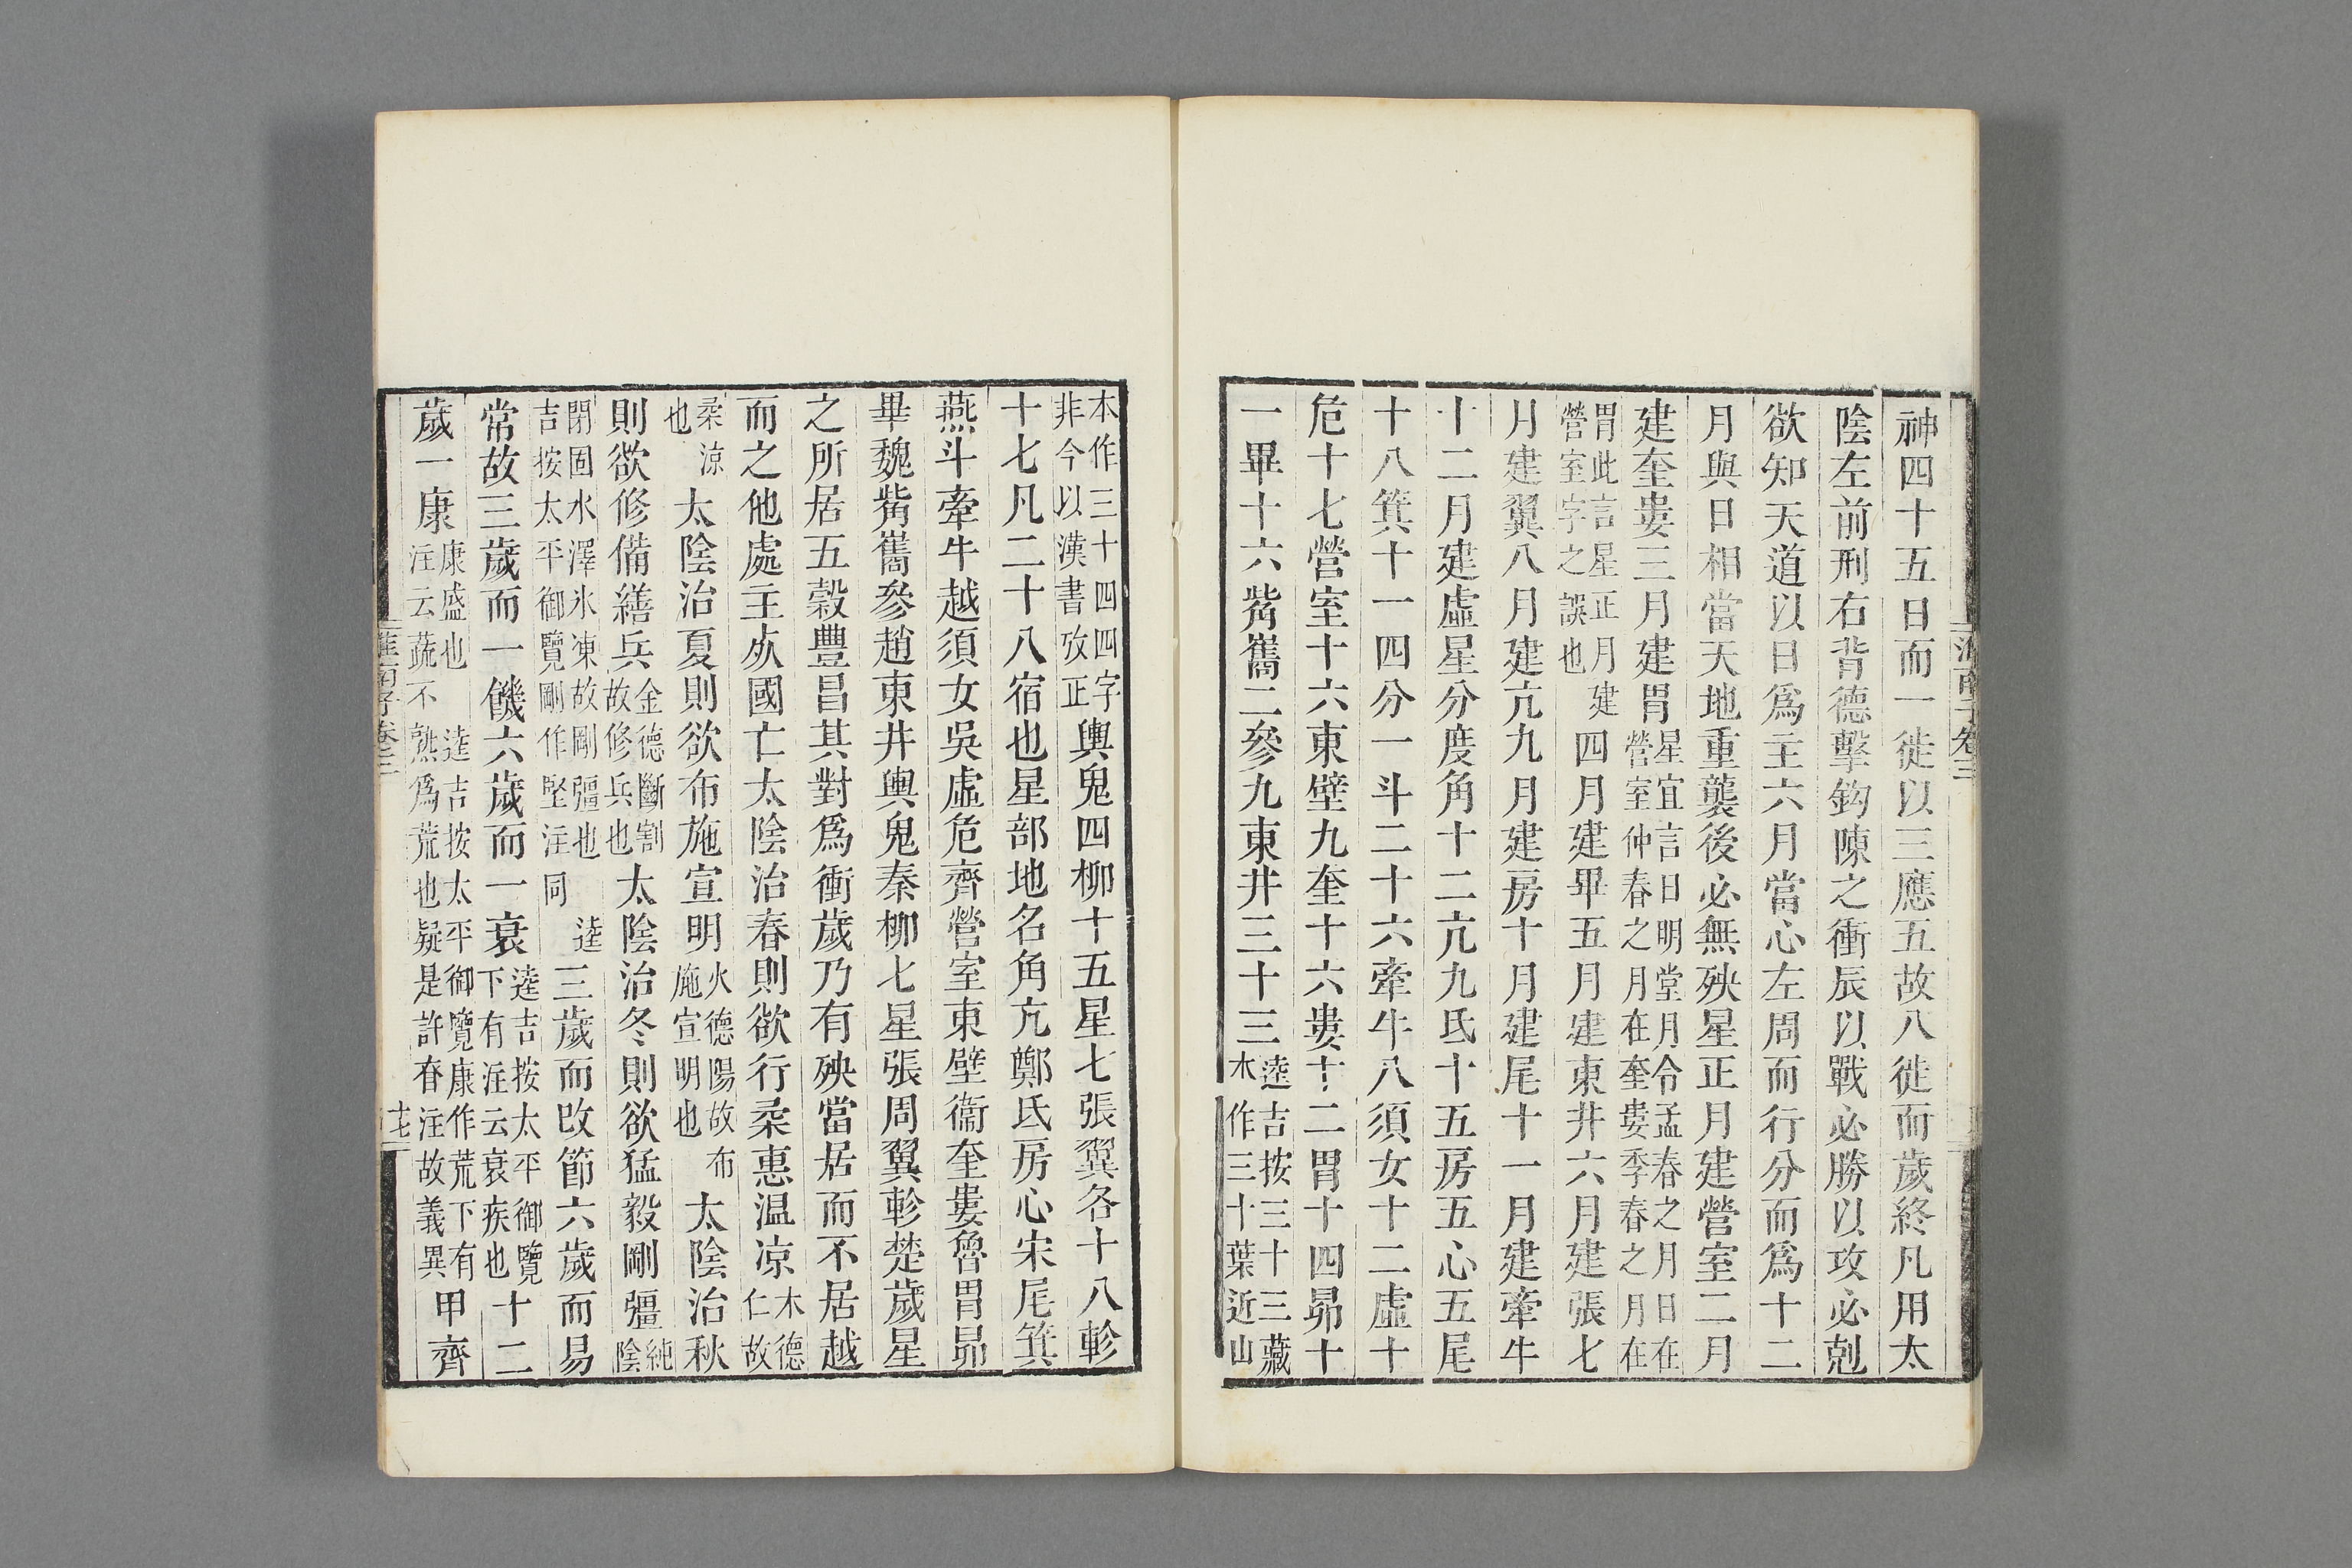 神四十五日而一徙以三應五故八徙而歲終凡用太
陰左前刑右背德擊鈎陳之衝辰以戰必勝以攻必剋
欲知天道以日爲主六月當心左周而行分而爲十二
月與日相當天地重襲後必無殃星正月建營室二月
建奎婁三月建胃星宜言日明堂月令孟春之月日在營室仲春之月在奎婁季春之月在
胃此言星正月建營室字之誤也四月建畢五月建東井六月建張七
月建翼八月建亢九月建房十月建尾十一月建牽牛
十二月建虛星分度角十二亢九氐十五房五心五尾
十八箕十一四分一斗二十六牽牛八須女十二虛十
危十七營室十六東壁九奎十六婁十二胃十四昴十
一畢十六觜巂二參九東井三十三逵吉按三十三藏本作三十葉近山
本作三十四四字非今以漢書攷正輿鬼四柳十五星七張翼各十八軫
十七凡二十八宿也星部地名角亢鄭氐房心宋尾箕
燕斗牽牛越須女吳虛危齊營室東壁衞奎婁魯胃昴
畢魏觜巂參趙東井輿鬼秦柳七星張周翼軫楚歲星
之所居五穀豐昌其對爲衝歲乃有殃當居而不居越
而之他處主死國亡太陰治春則欲行柔惠温凉木德仁故
柔涼也太陰治夏則欲布施宣明火德陽故布施宣明也太陰治秋
則欲修備繕兵金德斷割故修兵也太陰治冬則欲猛毅剛彊純陰
閉固水澤氷凍故剛彊也逵吉按太平御覽剛作堅注同三歲而改節六歲而易
常故三歲而一饑六歲而一衰逵吉按太平御覽下有注云衰疾也十二
歲一康康盛也逵吉按太平御覽康作荒下有注云蔬不熟爲荒也疑是許眘注故義異甲齊
淮南子卷三